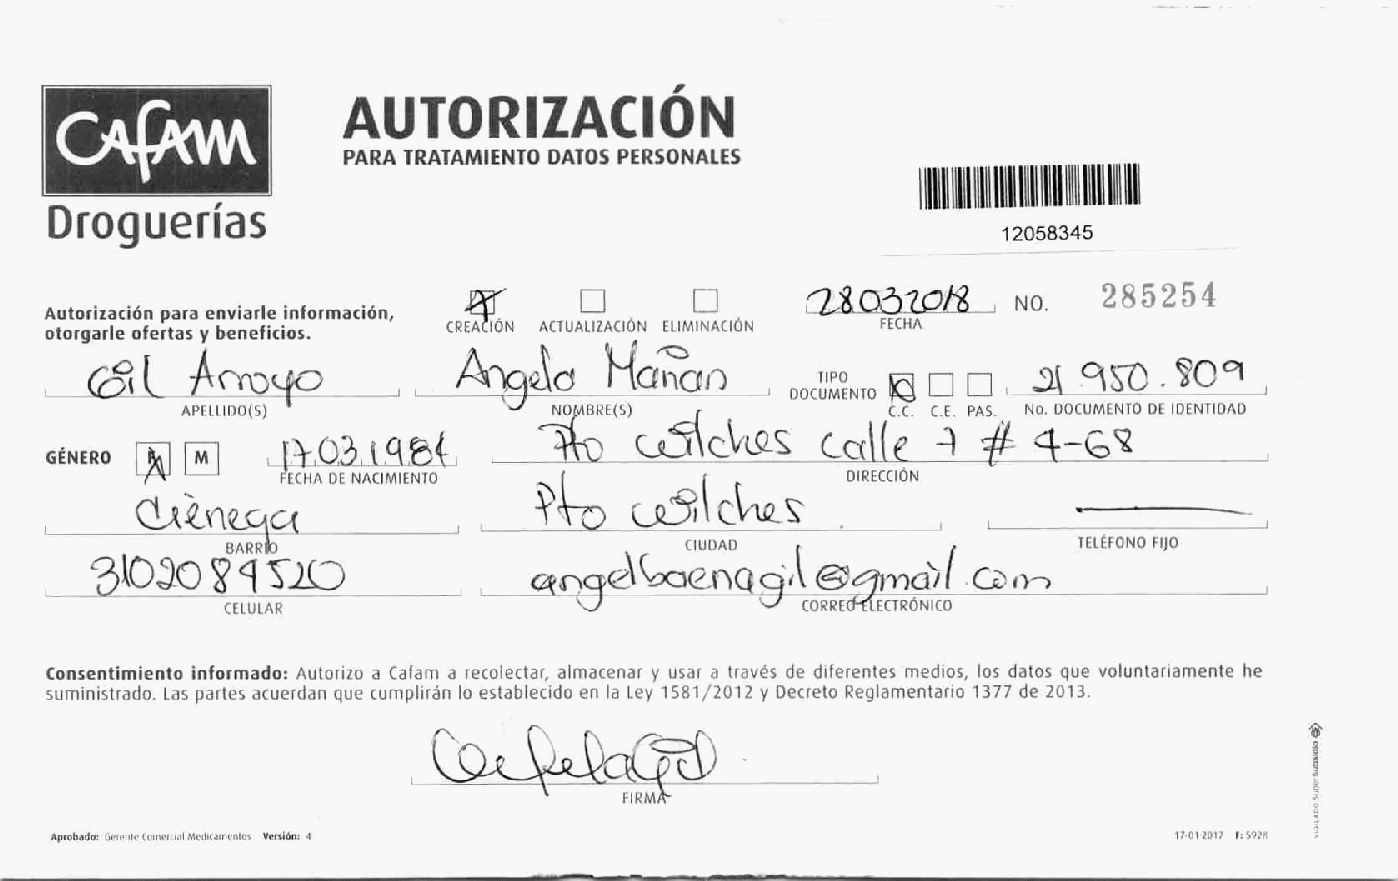 CAFAM
Droguerías
AUTORIZACIÓN
PARA TRATAMIENTO DATOS PERSONALES
12058345
Autorización para enviarle información,
otorgarle ofertas y beneficios.
CREACIÓN ACTUALIZACIÓN ELIMINACIÓN
28032018 NO. 285254
FECHA
Gil Arroyo Angela Mañan TIPO DOCUMENTO 21 950.809
APELLIDO(S) NOMBRE(S) C.C. C.E. PAS. No. DOCUMENTO DE IDENTIDAD
GÉNERO M 17.03.198 Pto wilches calle 7 # 4-68
FECHA DE NACIMIENTO DIRECCIÓN
Cienega Pto wilches
BARRIO CIUDAD TELÉFONO FIJO
3102089520 angelbaenagil@gmail.com
CELULAR CORREO ELECTRÓNICO
Consentimiento informado: Autorizo a Cafam a recolectar, almacenar y usar a través de diferentes medios, los datos que voluntariamente he
suministrado. Las partes acuerdan que cumplirán lo establecido en la Ley 1581/2012 y Decreto Reglamentario 1377 de 2013.
FIRMA
Aprobado: Gerente Comercial Medicamentos Versión: 4
17-01-2017 F: 592R
VIGILADO SuperSubsidio